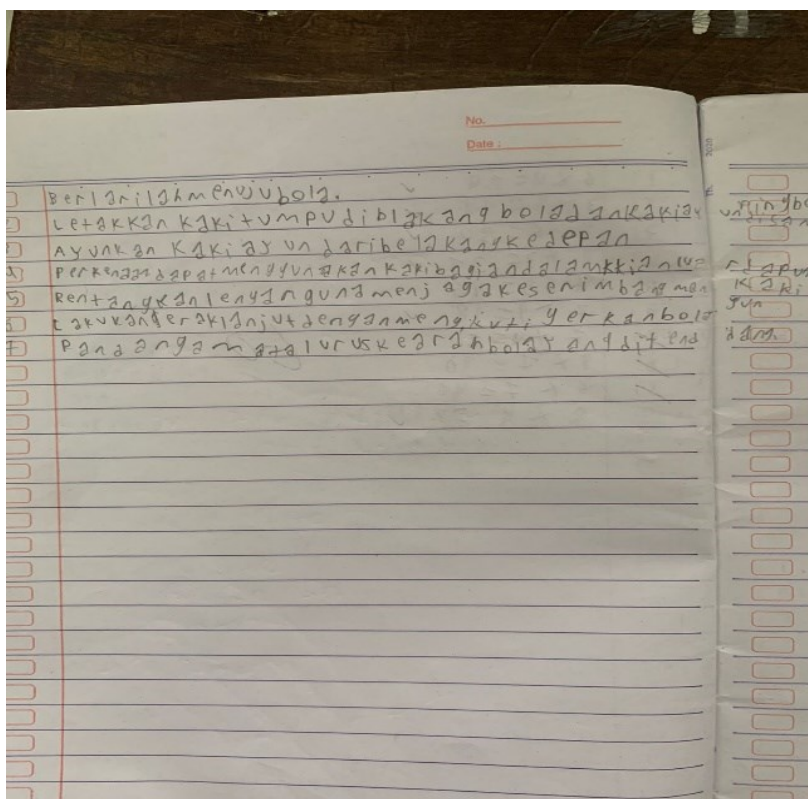 No.
Date :
Berlarilahmenujubola.
Letakkan kaki tumpu diblakang boladankakiay unsingbe
Ayunkan kaki ayun daribelakangkedepan
Perkenaandapatmenggunakan kakibagiandalam
Rentangkanlenganguna menjagakesenimbangmen
Lakukangeraklanjutdenganmengikuti gerkanbola
Pandanganmataluruskearahbolayangditend dang.